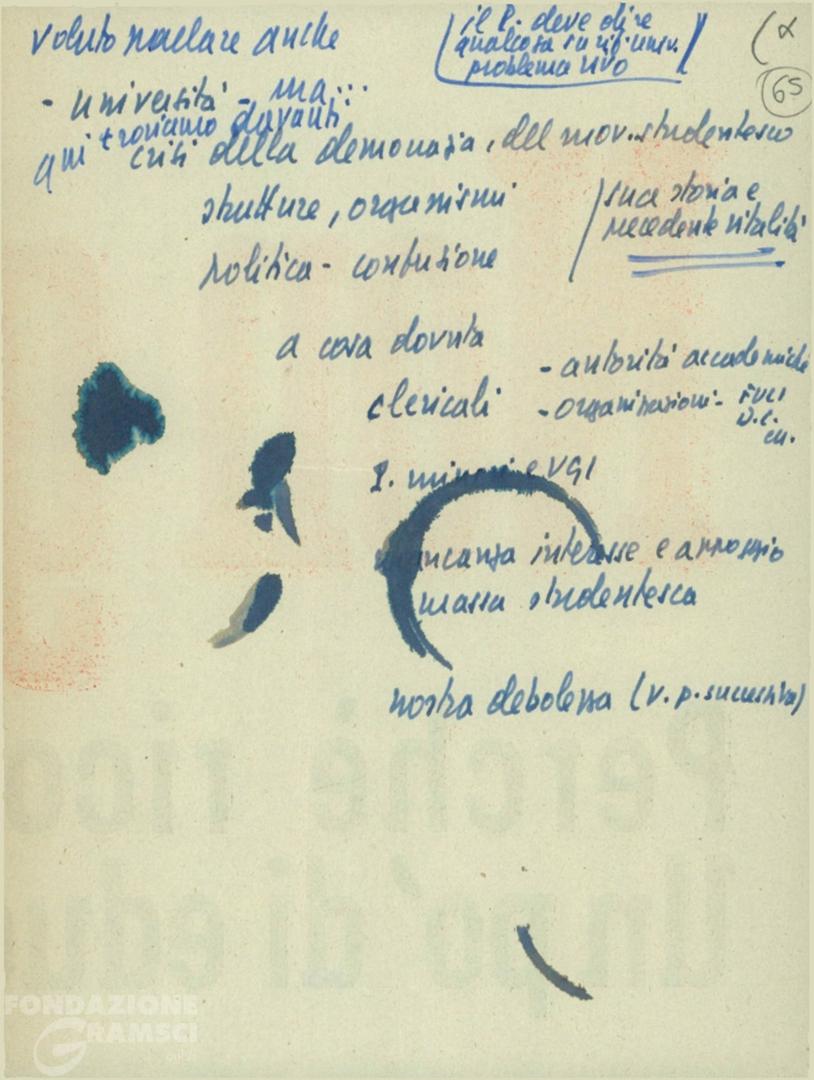 voluto parlare anche
(il P. deve dire
qualcosa su rif. univ.
problema vivo)
(α
65
- università - ma...
qui troviamo davanti
crisi della democrazia, del mov. studentesco
strutture, organismi
/sua storia e
precedente vitalità
politica - confusione
a cosa dovuta
clericali
- autorità accademiche
- organizzazioni - FUCI
D.C.
P. minori e UGI
mancanza interesse e appoggio
massa studentesca
nostra debolezza (v. p. successiva)
Perché rico
Un po' di edu
FONDAZIONE
GRAMSCI